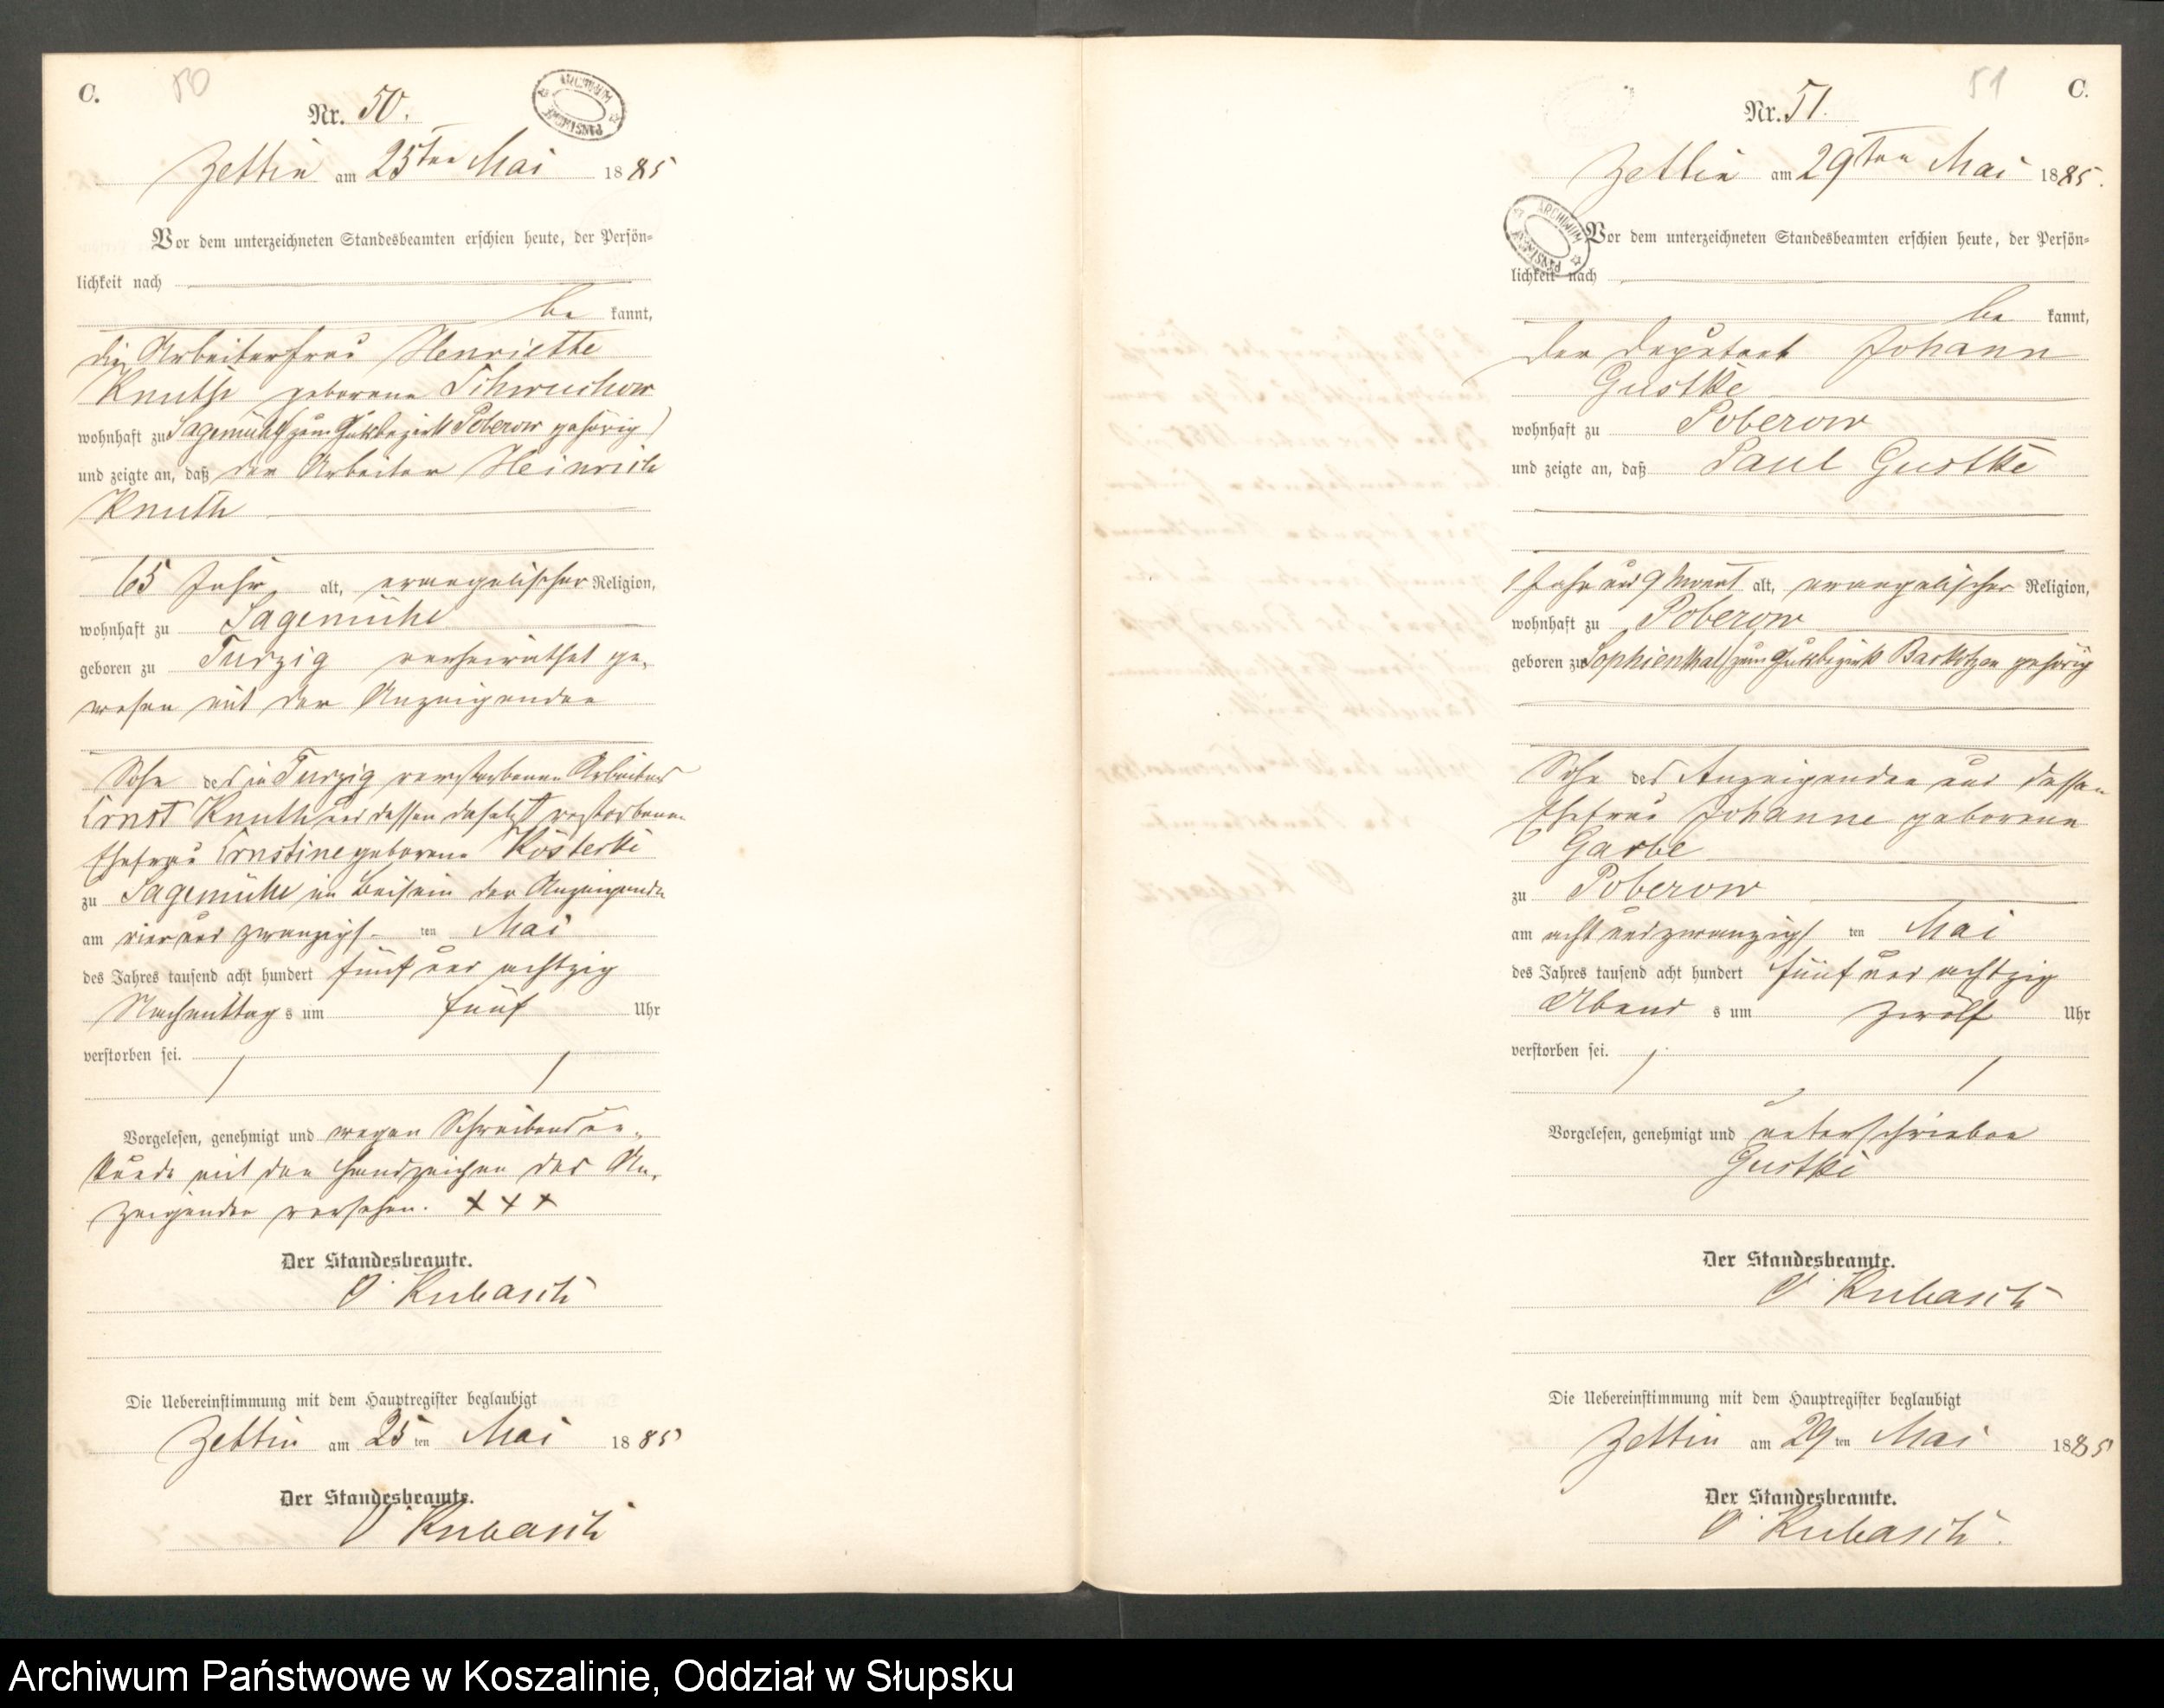 C.
50
Nr. 50.
ARCHIWUM PAŃSTWOWE
Zettin am 25ten Mai 1885
Vor dem unterzeichneten Standesbeamten erschien heute, der Persön-
lichkeit nach
be kannt,
die Arbeiterfrau Henriette
Knuth geborene Schwuchow
wohnhaft zu Sagemühl (zum Gutsbezirk Poberow gehörig)
und zeigte an, daß der Arbeiter Heinrich
Knuth
65 Jahr alt, evangelischer Religion,
wohnhaft zu Sagemühl
geboren zu Turzig verheirathet ge-
wesen mit der Anzeigenden
Sohn des in Turzig verstorbenen Arbeiters
Ernst Knuth und dessen daselbst verstorbenen
Ehefrau Ernestine geborene
zu Sagemühl im Beisein der Anzeigenden
am vier und zwanzigs- ten Mai
des Jahres tausend acht hundert fünf und achtzig
Nachmittag s um fünf Uhr
verstorben sei.
Vorgelesen, genehmigt und wegen Schreibensun-
kunde mit den Handzeichen der An-
zeigenden versehen. + + +
Der Standesbeamte.
O. Kubasch
Die Uebereinstimmung mit dem Hauptregister beglaubigt
Zettin am 25 ten Mai 1885
Der Standesbeamte.
O. Kubasch
51
C.
Nr. 51.
Zettin am 29ten Mai 1885.
ARCHIWUM PAŃSTWOWE
Vor dem unterzeichneten Standesbeamten erschien heute, der Persön-
lichkeit nach
be kannt,
der Deputant Johann
Gustke
wohnhaft zu Poberow
und zeigte an, daß Paul Gustke
1 Jahr und 9 Monat alt, evangelischer Religion,
wohnhaft zu Poberow
geboren zu Sophienthal (zum Gutsbezirk Bartkotzen gehörig
Sohn des Anzeigenden und dessen
Ehefrau Johanne geborene
Garbe
zu Poberow
am acht und zwanzigs ten Mai
des Jahres tausend acht hundert fünf und achtzig
Abend s um zwölf Uhr
verstorben sei.
Vorgelesen, genehmigt und unterschrieben
Gustke
Der Standesbeamte.
O. Kubasch
Die Uebereinstimmung mit dem Hauptregister beglaubigt
Zettin am 29 ten Mai 1885
Der Standesbeamte.
O. Kubasch.
Archiwum Państwowe w Koszalinie, Oddział w Słupsku